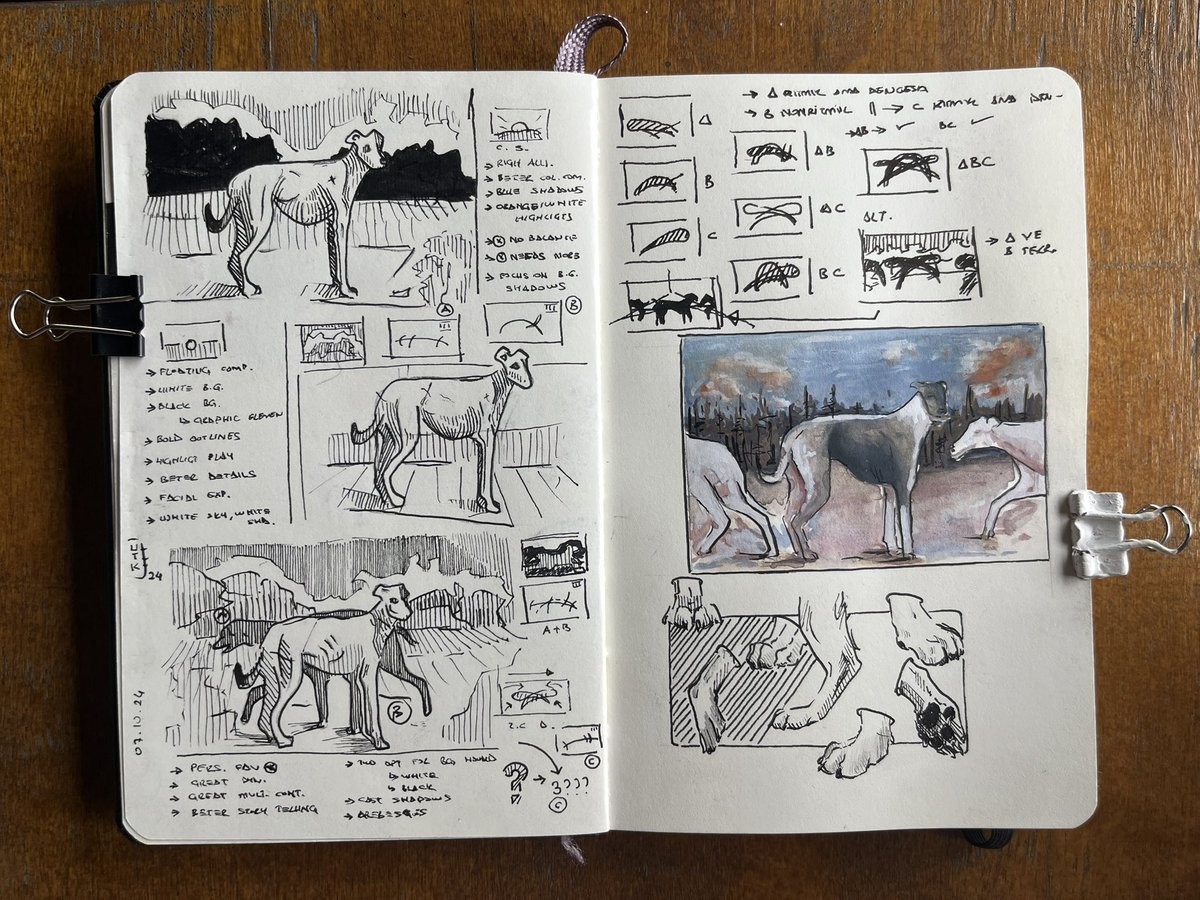 C. S.
→ RIGH ALLI.
→ BETER COL. COM.
→ BLUE SHADOWS
→ ORANGE/WHITE
HIGHLIGTS
→ NO BALANCE
→ NEEDS MORE
→ FOCUS ON B.G.
SHADOWS
A
B
→ FLOATING COMP.
→ WHITE B.G.
→ BLACK BG.
↳ GRAPHIC ELEVEN
→ BOLD OUTLINES
→ HIGHLIGT PLAY
→ BETER DETAILS
→ FACIAL EXP.
→ WHITE SKY, WHITE
SHA.
24
07.10.24
A + B
B
2. C D.
C
→ PERS. FAV
→ GREAT DYN.
→ GREAT MULTI. CONT.
→ BETER STORY TELLING
→ TWO OPT FOR BG HOUND
↳ WHITE
↳ BLACK
→ CAST SHADOWS
→ AREBESQUES
? → 3???
C
→ A RITMIK AMA DENGESİZ
→ B NONRITMIK || → C RITMIK AMA DEN-
→ AB → ✓ BC ✓
A
B
C
AB
AC
BC
ABC
ALT.
→ A VE
B TEKR.